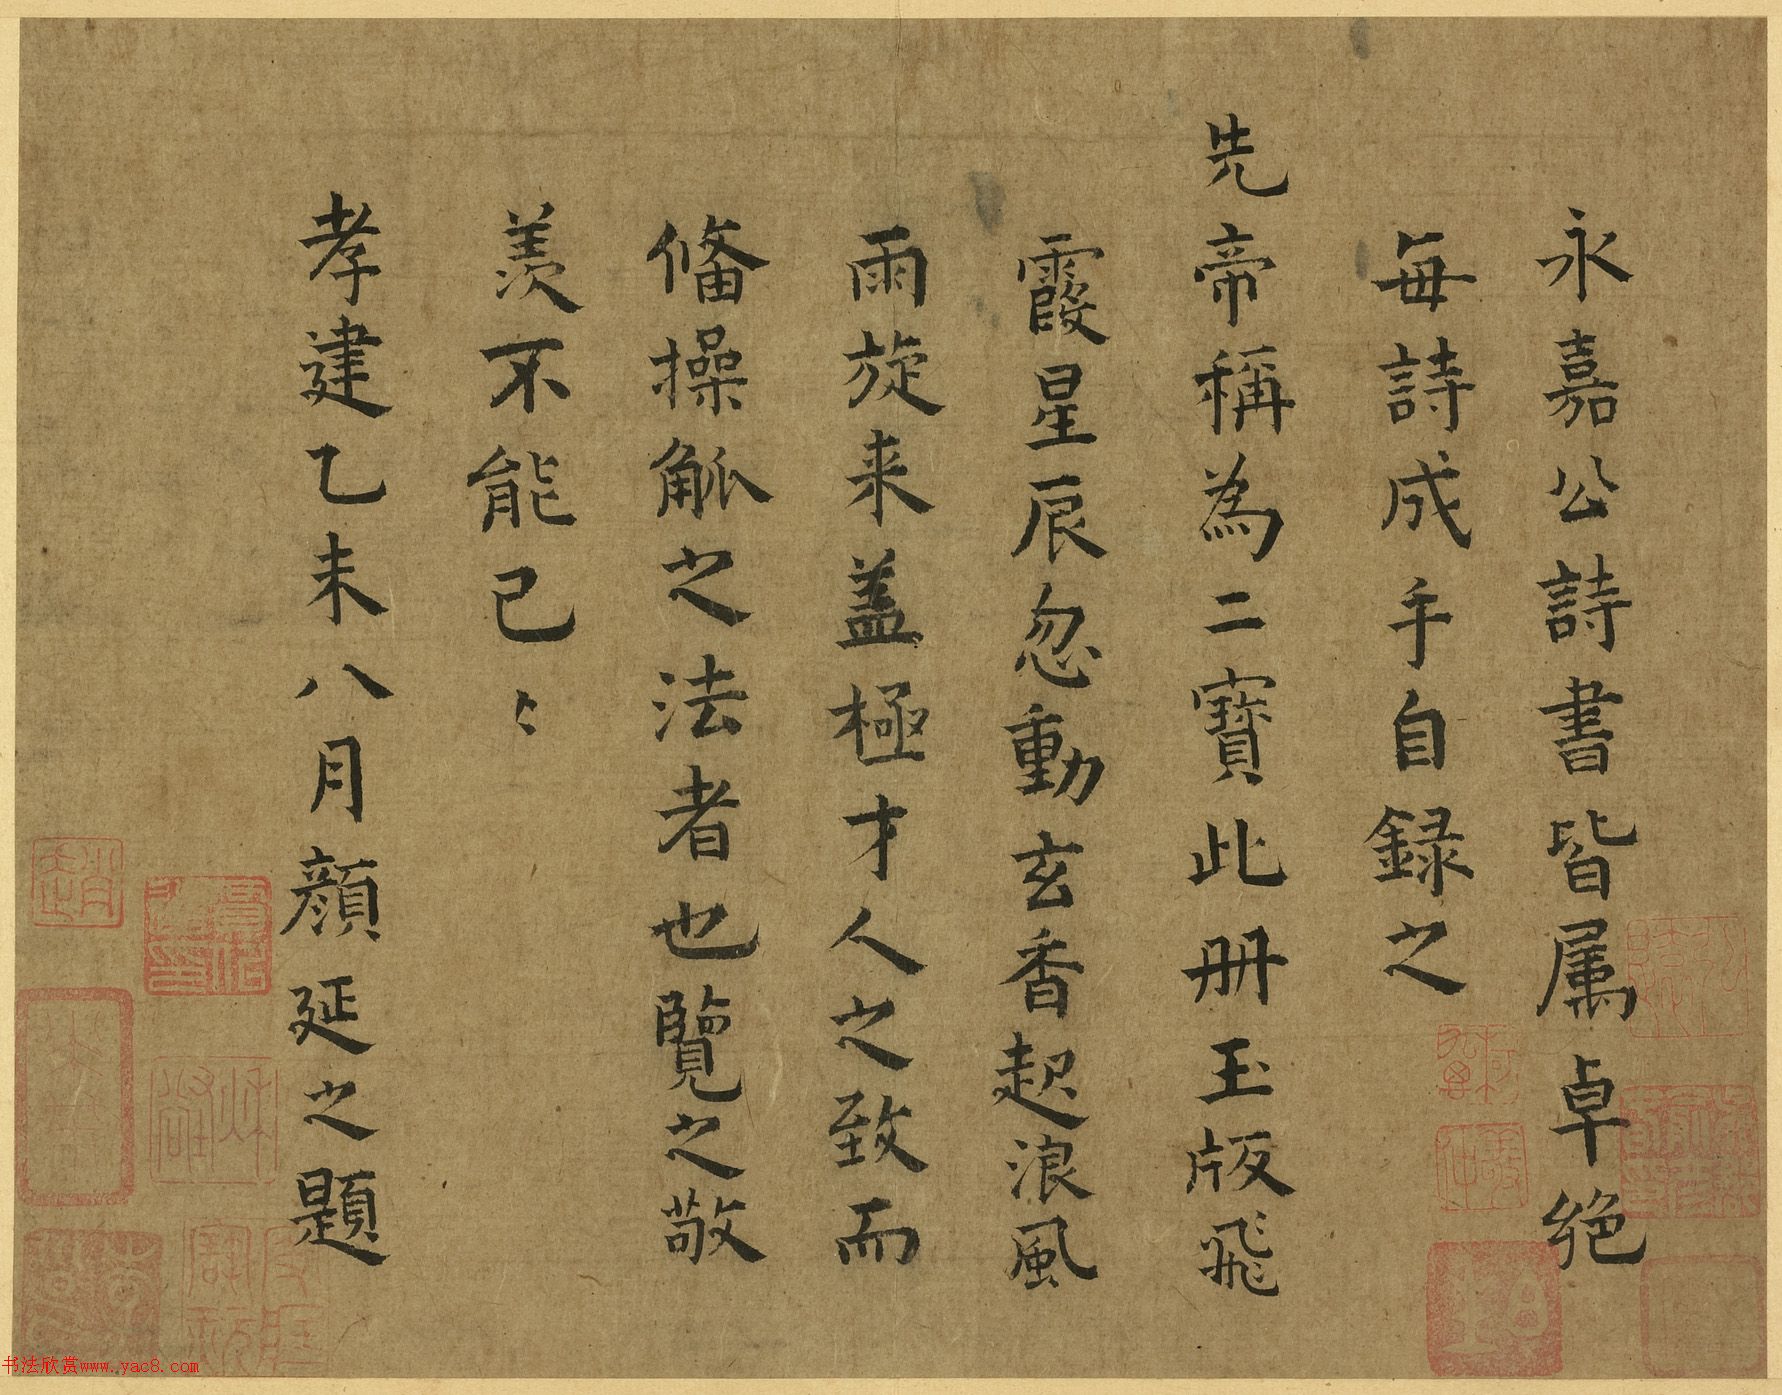 永嘉公詩書皆属卓絶
每詩成手自録之
先帝稱為二寶此册玉版飛
霞星辰忽動玄香起浪風
雨旋来盖極才人之致而
俻操觚之法者也覽之敬
羡不能已〻
孝建乙未八月顔延之題
书法欣赏www.yac8.com